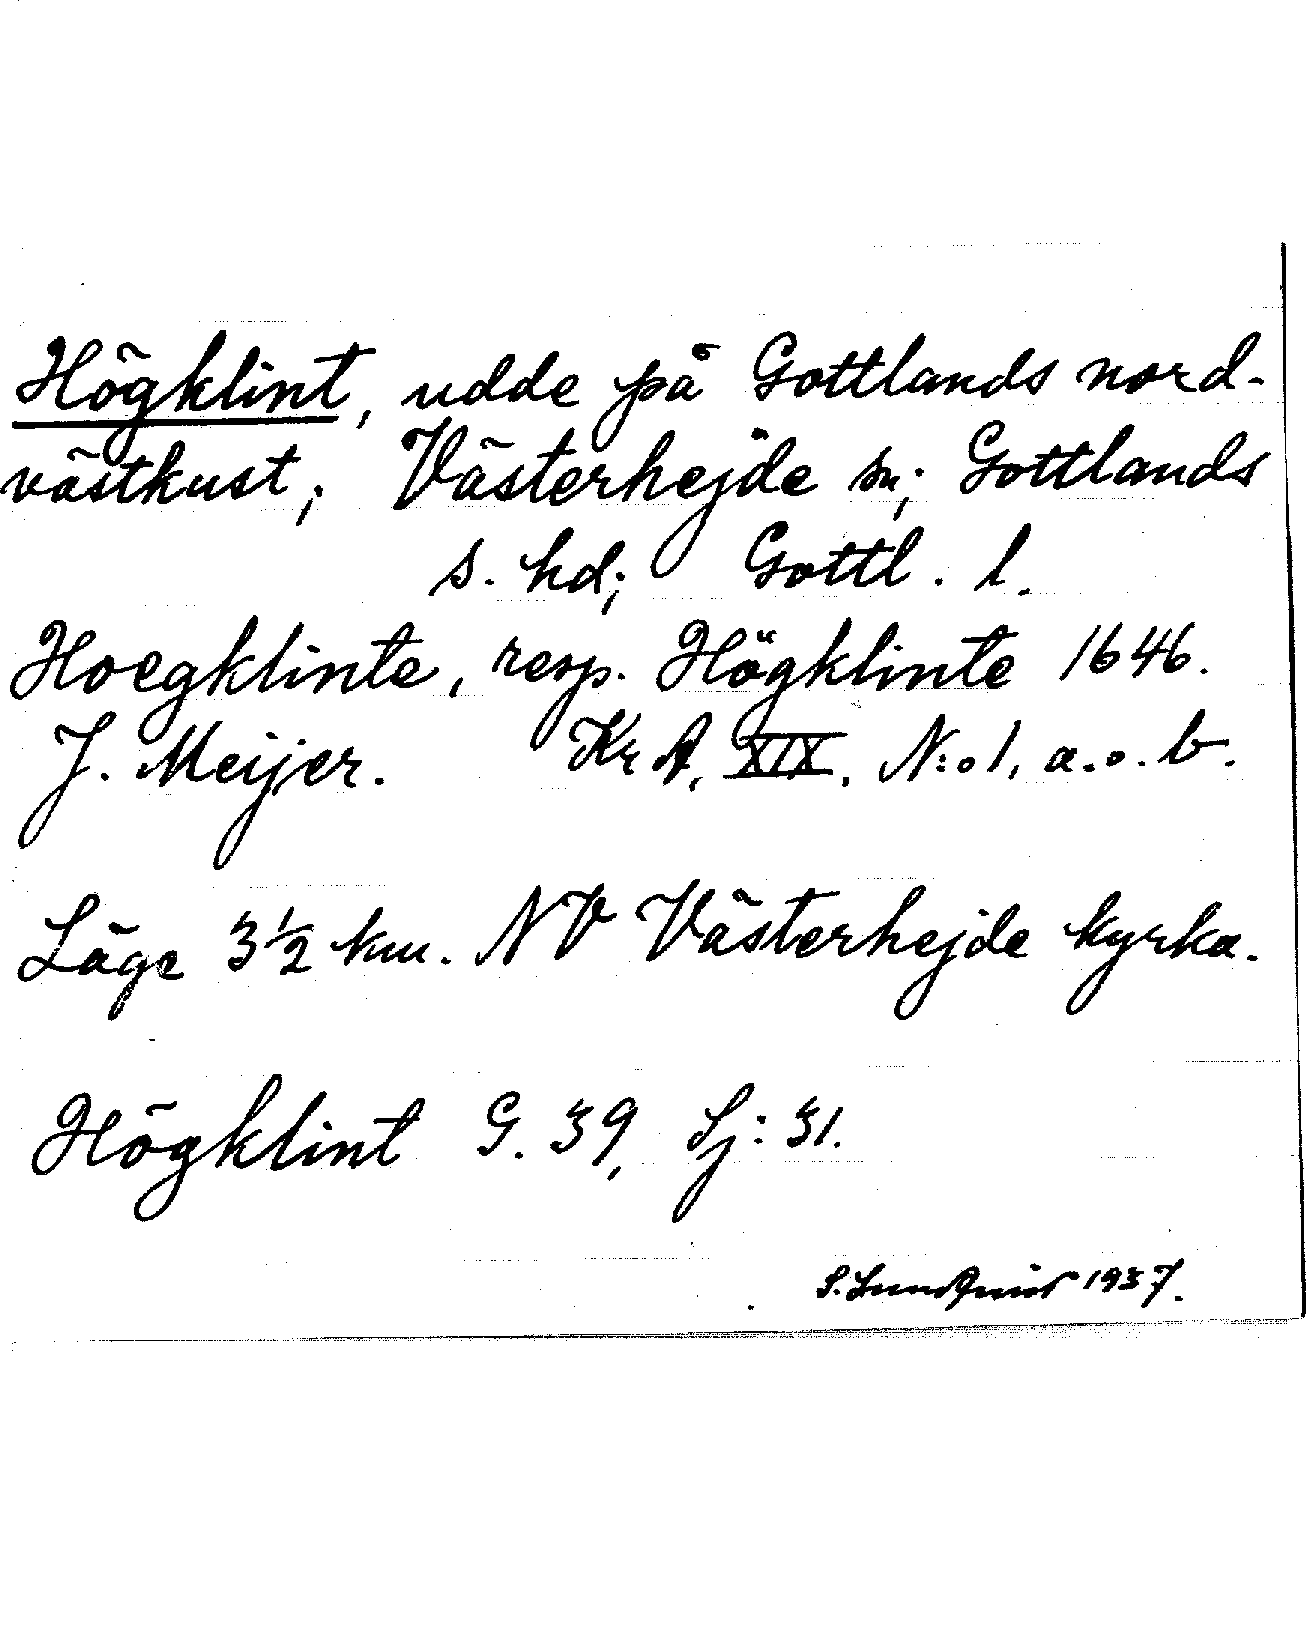 Högklint, udde på Gottlands nord-
västkust; Västerhejde sn; Gottlands
s. hd; Gottl. l.
Hoegklinte, resp. Högklinte 1646.
J. Meijer. Kr A, XIX, N:o 1, a.o.b.
Läge 3 1/2 km. NV Västerhejde kyrka.
Högklint G. 39, Sj: 31.
S. Lundquist 1937.